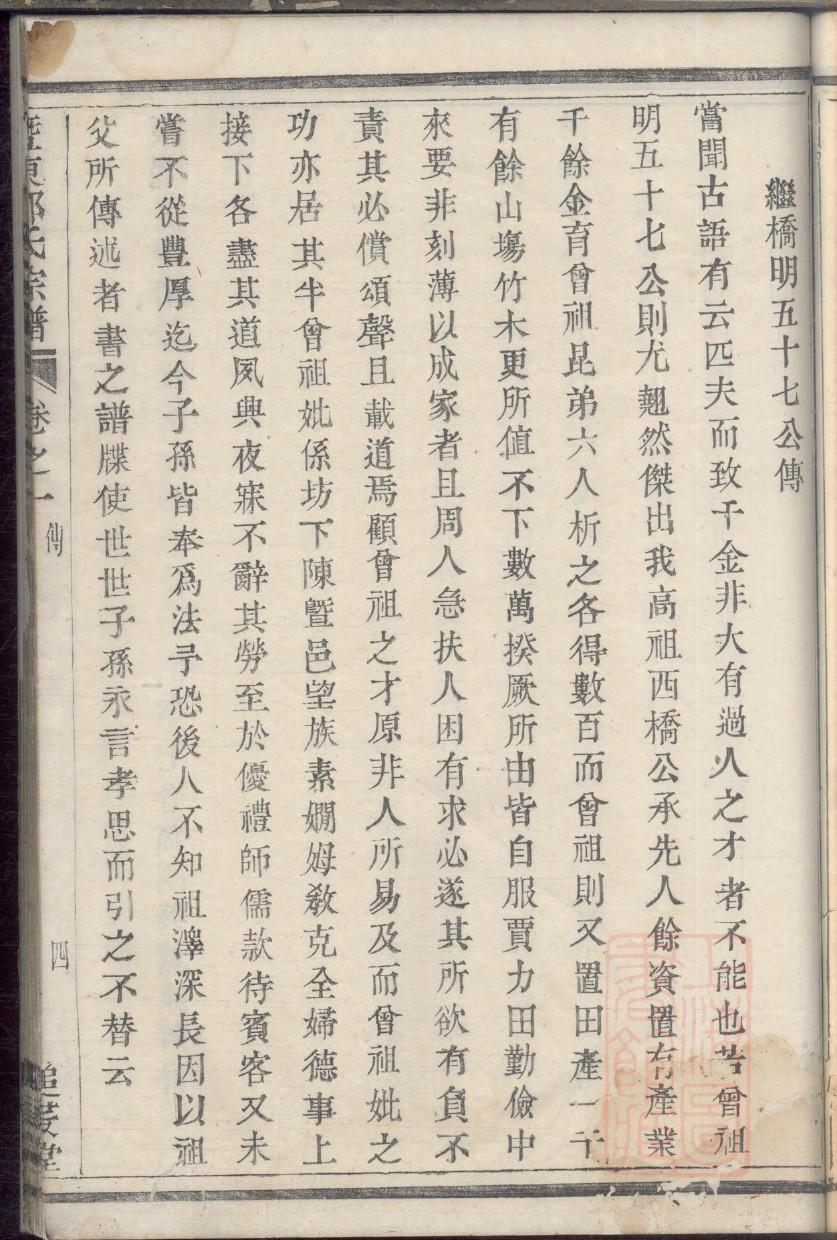 繼橋明五十七公傳
嘗聞古語有云匹夫而致千金非大有過人之才者不能也若曾祖
明五十七公則尤翹然傑出我高祖西橋公承先人餘資置有產業
千餘金育曾祖昆弟六人析之各得數百而曾祖則又置田產一千
有餘山塲竹木更所值不下數萬揆厥所由皆自服賈力田勤儉中
來要非刻薄以成家者且周人急扶人困有求必遂其所欲有負不
責其必償頌聲且載道焉顧曾祖之才原非人所易及而曾祖妣之
功亦居其半曾祖妣係坊下陳暨邑望族素嫺姆教克全婦德事上
接下各盡其道夙興夜寐不辭其勞至於優禮師儒款待賓客又未
嘗不從豐厚迄今子孫皆奉爲法予恐後人不知祖澤深長因以祖
父所傳述者書之譜牒使世世子孫永言孝思而引之不替云
氏宗譜 卷之一 傳 四